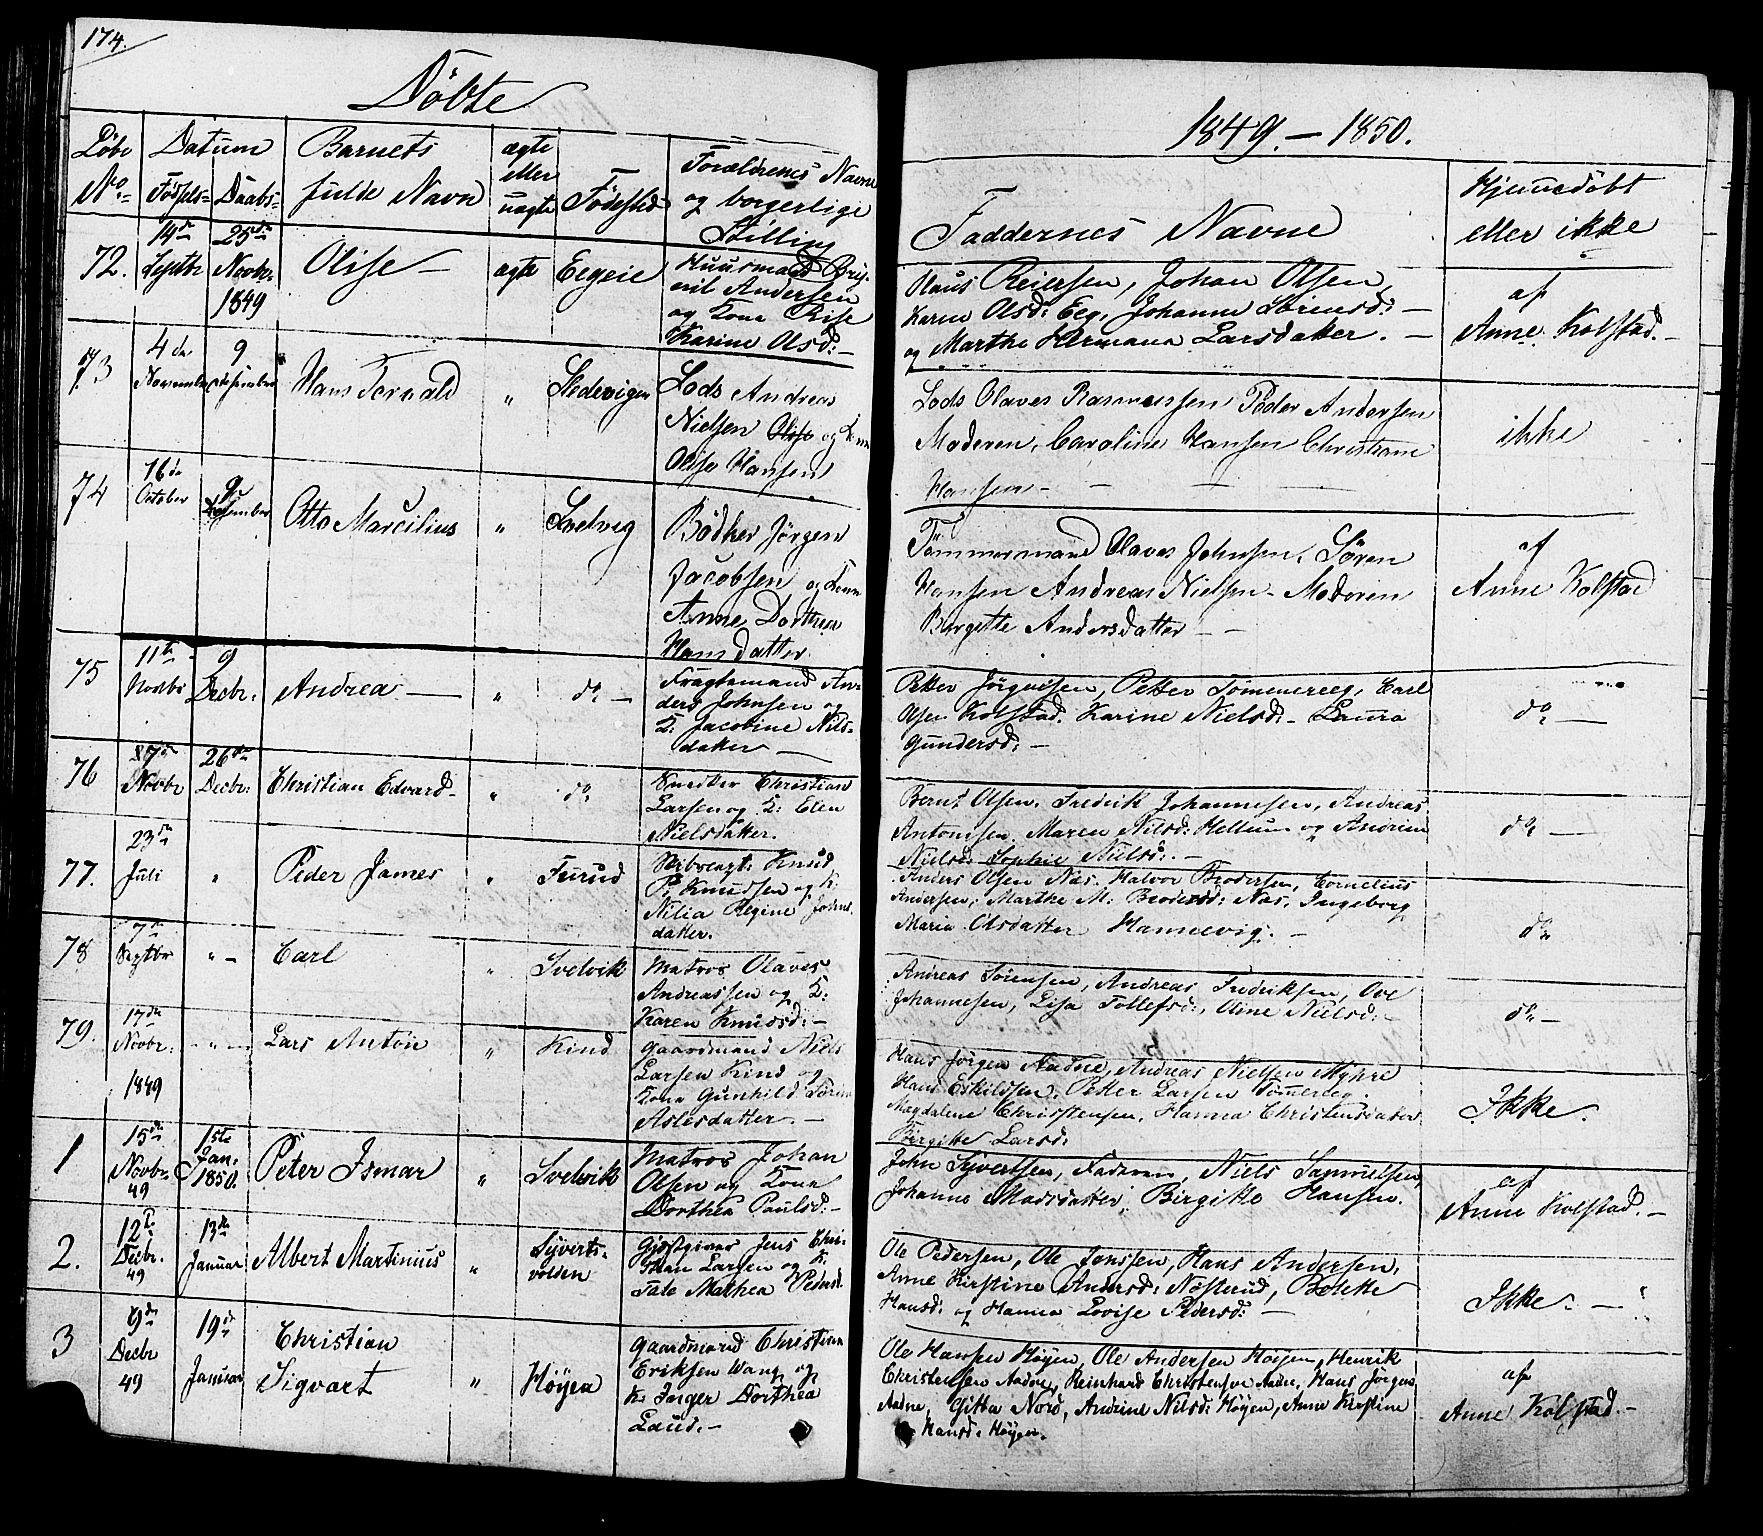 174.
Döbte
1849. – 1850.
Löbe No
Datum
Födsels- Daabs-
Barnets
fulde Navn
ægte
eller
uægte
Födested
Forældrenes Navne
og borgerlige
Stilling
Faddernes Navne
Hjemmedöbt
eller ikke
72.
14de
Septbr
25de
Novbr.
1849
Olise –
ægte
Eegeie
Huusmand
Andersen
og Kone
Karine Olsd: –
Hans Reiersen, Johan Olsen,
Karen Olsd: Eeg, Johanne Sörensd: –
og Marthe Hermana Larsdatter. –
af
Anne Kolstad. –
73
4de
November
9
December
Hans Torvald
"
Stedevigen
Lods Andreas
Nielsen Olise og Kone
Olise Hansen
Lods Olaves Rasmussen Peder Andersen
Moderen, Caroline Hansen Christiane
Hansen –
ikke
74
16de
October
9de
December
Otto Marcilius
"
Svelvig
Bödker Jörgen
Jacobsen og Kone
Anne Dorthea
Hansdatter
Tömmermand Olaves Johnsen, Sören
Hansen Andreas Nielsen – Moderen
Birgette Andersdatter – –
af
Anne Kolstad
75
11te
Novbr
9
Decbr:
Andrea –
"
do –
Fragtemand An-
ders Johnsen og
K: Jacobine Nils-
datter –
Petter Jörgensen, Petter Tömmereeg, Carl
Olsen Kolstad. Karine Nielsd: – Laura
Gundersd: –
do –
76
Novbr
26de
Decbr:
Christian Edvard –
"
do
Smed Christian
Larsen og K: Elen
Nielsdatter.
Bernt Olsen, Fredrik Johannesen, Andreas
Antonsen, Maren Nilsd: Hellum og Andrine
Nielsd: Sophie Nielsd: –
do –
77.
23de
Juli
"
Peder James
"
Feirud
Knud
P: Knudsen og K:
Nilia Regine Johns-
datter.
Anders Olsen Næs, Halvor Brodersen, Cornelius
Andersen, Marthe M: Brodersd: Næs, Ingeborg
Maria Olsdatter Hannevig. –
do
78
7de
Septbr
" –
Carl
"
Svelvik
Matros Olaves
Andreassen og K:
Karen Knudsd: –
Andreas Sörensen, Andreas Fredriksen, Ove
Johannesen, Lisa Tollefsd:, Oline Nielsd: –
do –
79.
17de
Novbr:
1849
– " –
Lars Anton
"
Kind
Gaardmand Niels
Larsen Kind og
Kone Gunhild Sörine
Aslesdatter. –
Hans Jörgen Aadne, Andreas Nielsen Myhre
Hans Eskildsen, Petter Larsen Tömereeg.
Magdalene Christensen, Hanna Christensdatter
Birgitte Larsd:
Ikke.
1
15de
Novbr.
49
1ste
Jan.
1850.
Peter Ismar
"
Svelvik
Matros Johan
Olsen og Kone
Dorthea Paulsd: –
John Syvertsen, Faderen, Niels Samuelsen,
Johanne Madsdatter, Birgitte Hansen.
af
Anne Kolstad. –
2.
12te
Decbr.
49
13de
Januar
Albert Martinius
"
Syverts-
volden
Gjæstgiver Jens Chri-
stian Larsen og K:
Mathea
Ole Pedersen, Ole Jonssen, Hans Andersen,
Anne Kirstine Andersd: Nösterud, Bolette
Hansd: og Hanna Lovise Pedersd: –
Ikke. –
3
9de
Decbr
49
19de
Januar
Christian
Sigvart
"
Höyen
Gaardmand Christian
Eriksen Wang og
K: Inger Dorthea
Laud. –
Ole Hansen Höyen, Ole Andersen Höyen, Henrik
Christensen Aadne, Reinhard Christensen Aadne, Hans Jörgen
Aadne, Gitta Nord, Andrine Nilsd: Höyen, Anne Kirstine
Hansd: Höyen.
af
Anne Kolstad. –